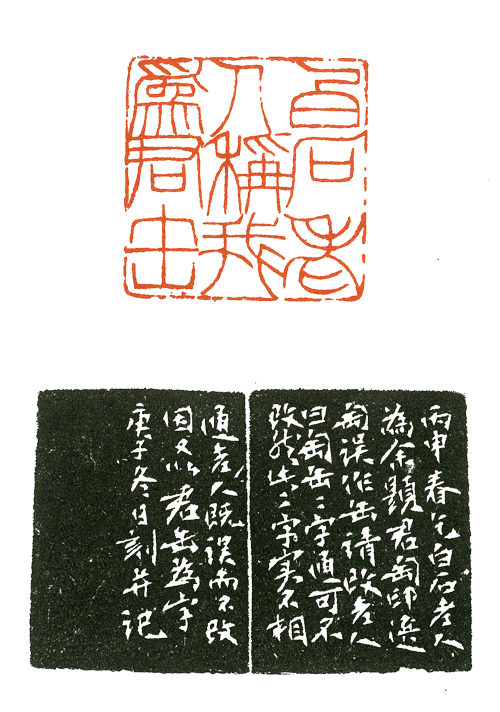 白石老
人稱我
為君缶
丙申春乞白石老人
為余題君匋印選
匋誤作缶請改老人
曰匋缶二字通可不
改然此二字实不相
通老人既誤而不改
因又以君缶為字
庚子冬日刻并記